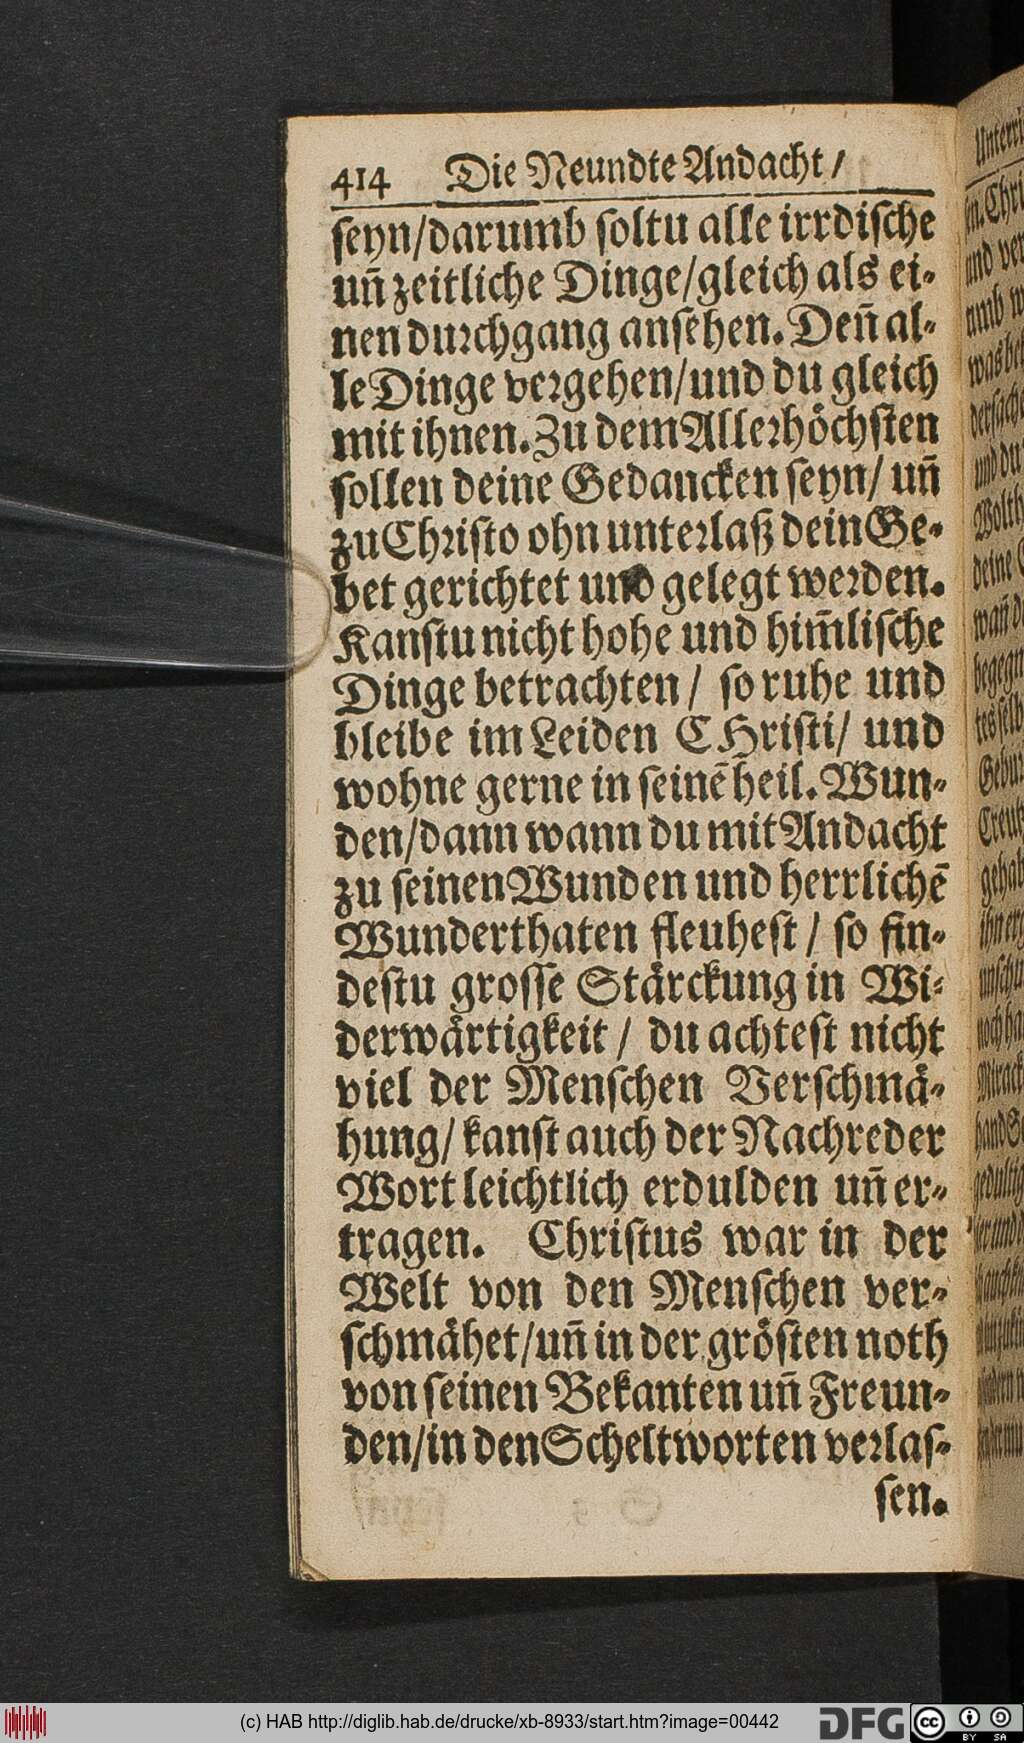 414 Die Neundte Andacht /
seyn/darumb soltu alle irrdische
uñ zeitliche Dinge/gleich als ei-
nen durchgang ansehen. Deñ al-
le Dinge vergehen/und du gleich
mit ihnen. Zu dem Allerhöchsten
sollen deine Gedancken seyn/ uñ
zu Christo ohn unterlaß dein Ge-
bet gerichtet und gelegt werden.
Kanstu nicht hohe und him̃lische
Dinge betrachten / so ruhe und
bleibe im Leiden CHristi/ und
wohne gerne in seinẽ heil. Wun-
den/dann wann du mit Andacht
zu seinen Wunden und herrlichẽ
Wunderthaten fleuhest / so fin-
destu grosse Stärckung in Wi-
derwärtigkeit / du achtest nicht
viel der Menschen Verschmä-
hung/ kanst auch der Nachreder
Wort leichtlich erdulden uñ er-
tragen. Christus war in der
Welt von den Menschen ver-
schmähet/uñ in der grösten noth
von seinen Bekanten uñ Freun-
den/in den Scheltworten verlas-
sen.
(c) HAB http://diglib.hab.de/drucke/xb-8933/start.htm?image=00442
DFG cc BY SA